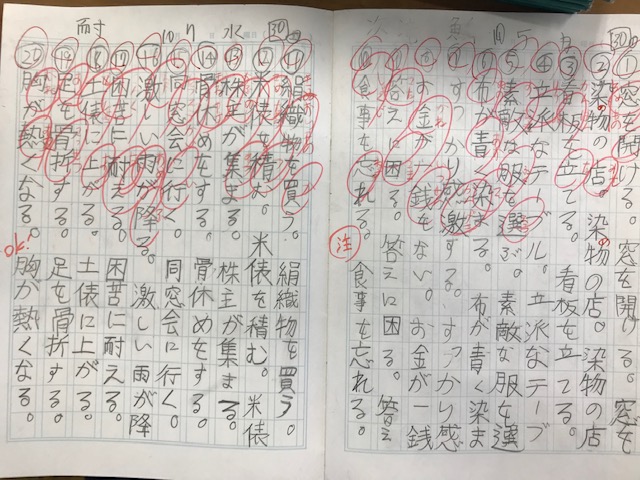 ①窓を開ける。窓を開ける。窓を
②染物の店。染物の店。染物の店
③看板を立てる。看板を立てる。
④立派なテーブル。立派なテーブ
⑤素敵な服を選ぶ。素敵な服を選
⑥布が青く染まる。布が青く染ま
⑦すっかり感激する。すっかり感
⑧お金が一銭もない。お金が一銭
⑨答えに困る。答えに困る。答え
⑩食事を忘れる。食事を忘れる。
注
⑪絹織物を買う。絹織物を買う。
⑫米俵を積む。米俵を積む。米俵
⑬株主が集まる。株主が集まる。
⑭骨休めをする。骨休めをする。
⑮同窓会に行く。同窓会に行く。
⑯激しい雨が降る。激しい雨が降
⑰困苦に耐える。困苦に耐える。
⑱土俵に上がる。土俵に上がる。
⑲足を骨折する。足を骨折する。
⑳胸が熱くなる。胸が熱くなる。
ok!
耐